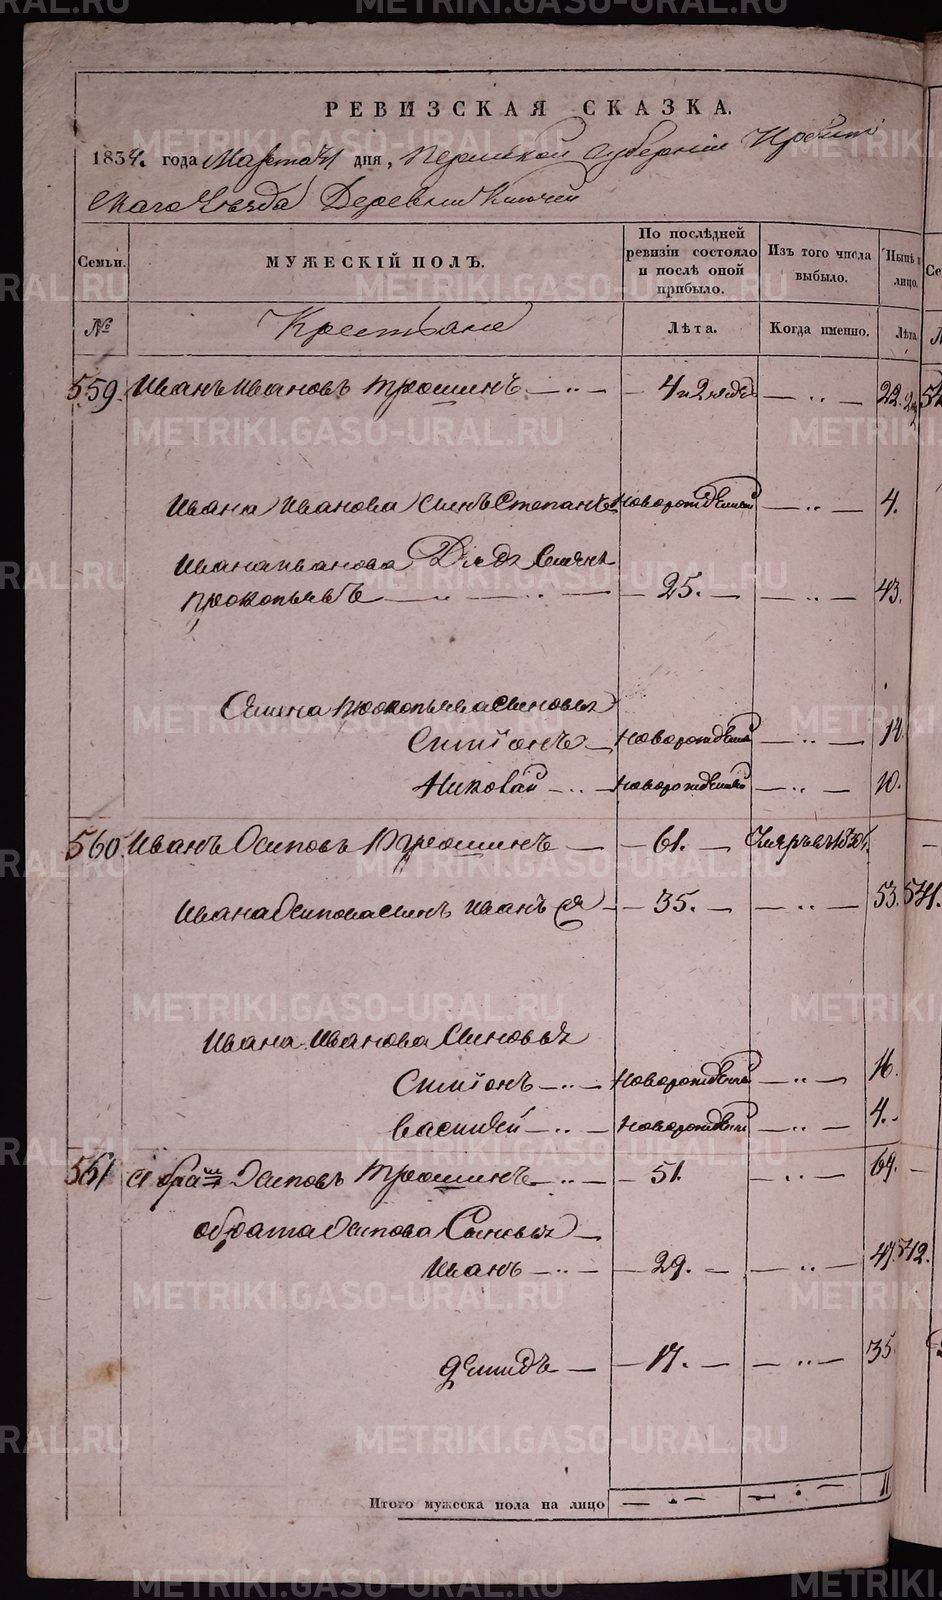 РЕВИЗСКАЯ СКАЗКА.
1834. года Марта 21 дня, Пермской Губернiи Ирбит
скаго Уѣзда Деревни Ключей
Семьи. МУЖЕСКIЙ ПОЛЪ. По послѣдней ревизiи состояло и послѣ оной прибыло. Изъ того числа выбыло. Нынѣ
лицо.
№ Крестьяне Лѣта. Когда именно. Лѣта
559. Иванъ Ивановъ Трошинъ 4 22.
Ивана Иванова сынъ Степанъ Новорожденный 4.
Ивана Иванова Дядя Семенъ
Прокопьевъ 25. 43.
Семена Прокопьева сыновья
Симiонъ Новорожденный 14
Николай Новорожденный 10.
560. Иванъ Осиповъ Трошинъ 61.
Ивана Осипова сынъ Иванъ 35. 53. 541.
Ивана Иванова Сыновья
Симiонъ Новорожденный 16.
Василей Новорожденный 4.
561 Осиповъ Трошинъ 51. 69.
Осипова Сыновья
Иванъ 29. 47. 542.
Демидъ 17. 35
Итого мужеска пола на лицо 11
METRIKI.GASO-URAL.RU